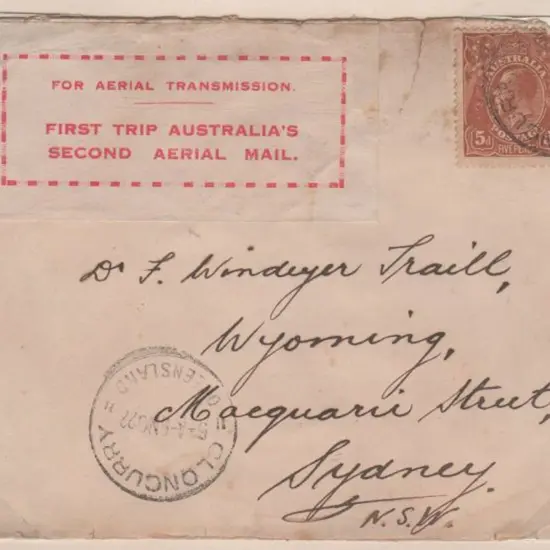 FOR AERIAL TRANSMISSION.
FIRST TRIP AUSTRALIA'S
SECOND AERIAL MAIL.
AUSTRALIA
POSTAGE
5d
FIVEPENCE
Dr F. Windeyer Traill,
Wyoming,
Macquarie Street,
Sydney.
N.S.W.
CLONCURRY
QUEENSLAND